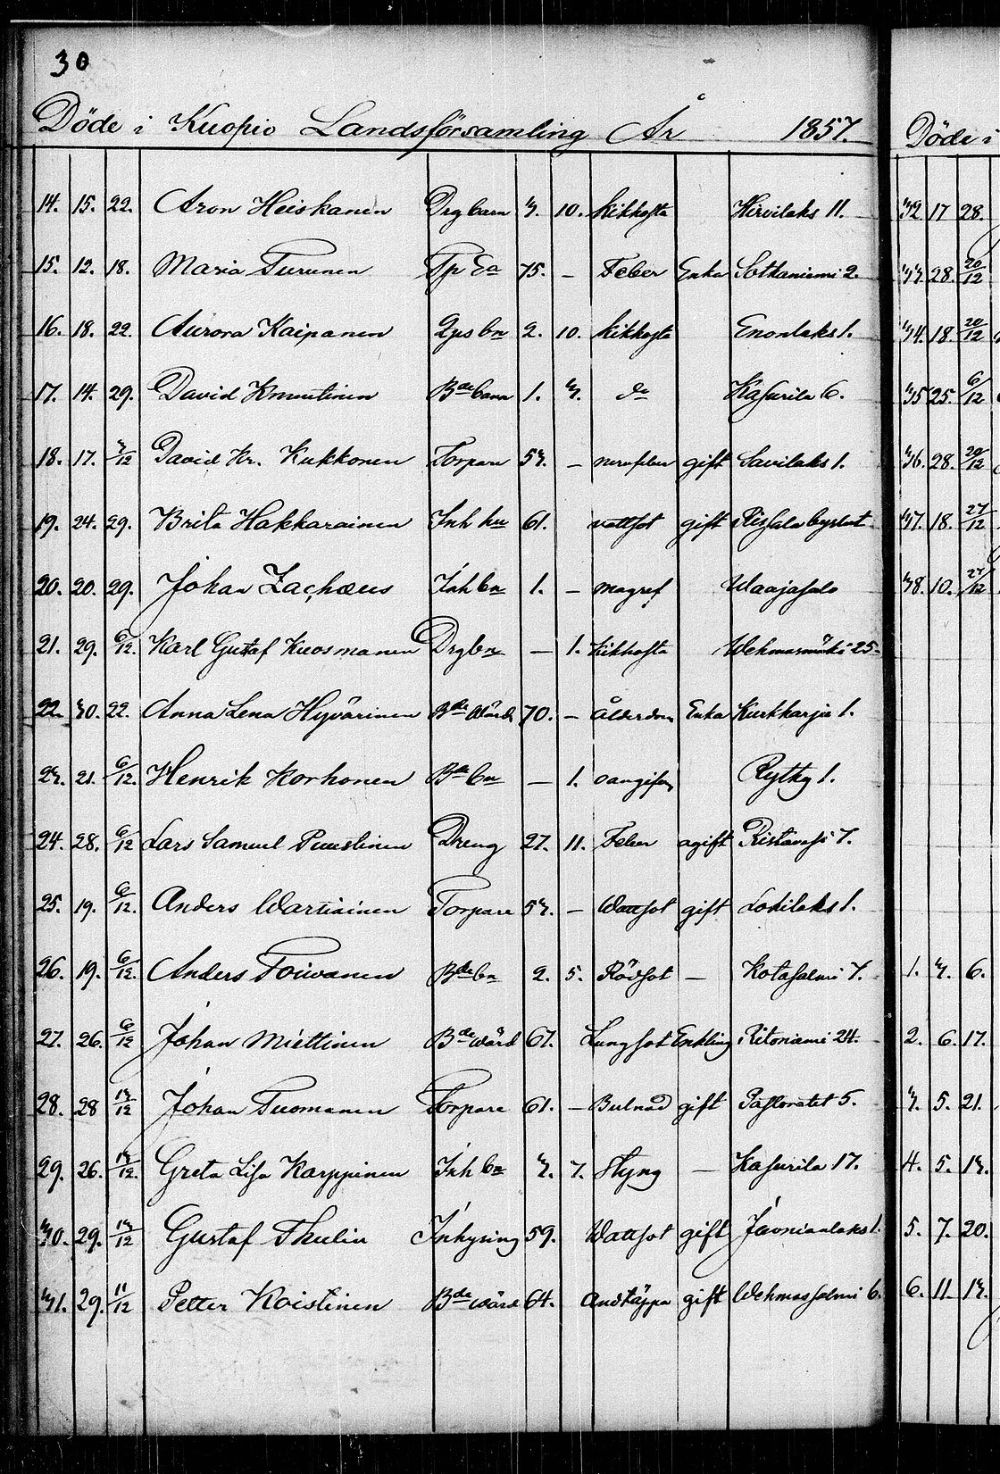 30
Döde i Kuopio Landsförsamling År 1857.
14. 15. 22. Aron Heiskanen Drg barn 3. 10. kikhosta Hirvilaks 11.
15. 12. 18. Maria Turunen Tp Ea 75. – Feber Enka Sotkaniemi 2.
16. 18. 22. Aurora Kaipanen bn 2. 10. kikhosta Enonlaks 1.
17. 14. 29. David Knuutinen Bde barn 1. 3. do Kasurila 6.
18. 17. 3/12 David Kr. Kukkonen Torpare 53. – nervfeber gift Savilaks 1.
19. 24. 29. Brita Hakkarainen Inh hu 61. vattsot gift
20. 20. 29. Johan Zachæus Inh bn 1. – magref Waajasalo
21. 29. 6/12. Karl Gustaf Kuosmanen Drg bn – 1. kikhosta Wehmasmäki 25.
22. 30. 22. Anna Lena Hyvärinen Bde Wärds 70. – Ålderdom Enka Kurkharju 1.
23. 21. 6/12. Henrik Korhonen Bde bn – 1. oangifven Rytky 1.
24. 28. 6/12 Lars Samuel Puustinen Dreng 27. 11. Feber ogift Ristavesi 7.
25. 19. 6/12. Anders Wartiainen Torpare 53. – Wattsot gift Lotilaks 1.
26. 19. 6/12. Anders Toivanen Bde bn 2. 5. Rödsot – Kotasalmi 7.
27. 26. 6/12 Johan Miettinen Bde Wärd 67. Lungsot Enkling Ritoniemi 24.
28. 28 13/12 Johan Tuomanen Torpare 61. – Bulnad gift Pastoratet 5.
29. 26. 13/12. Greta Lisa Karppinen Inh bn 3. 7. Styng – Kasurila 17.
30. 29. 13/12 Gustaf Thulin Inhysing 59. Wattsot gift 1.
31. 29. 11/12 Petter Koistinen Bde Wärd 64. Andtäppa gift Wehmassalmi 6.
Döde i
32 17 28.
33. 28. 20/12
34. 18. 20/12
35 25. 6/12
36. 28. 20/12
37. 18. 27/12
38. 10. 27/12
1. 3. 6.
2. 6. 17.
3. 5. 21.
4. 5. 13.
5. 7. 20.
6. 11. 13.